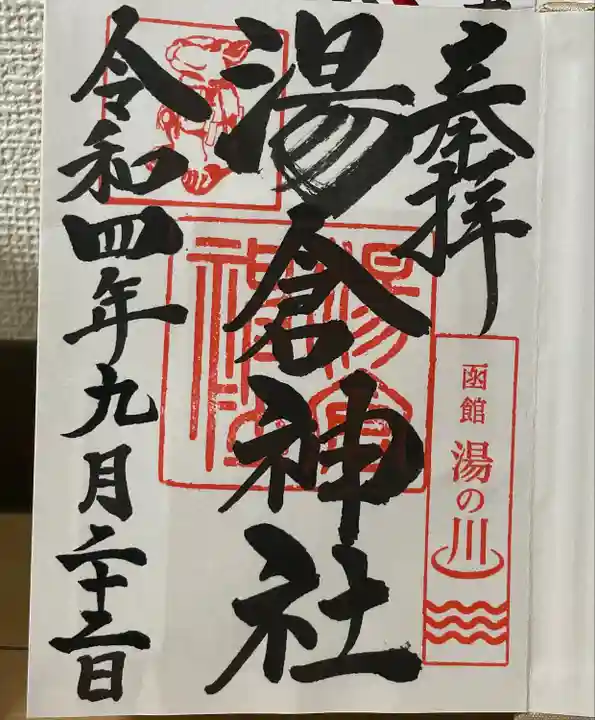 奉拝
函館 湯の川
湯倉神社
湯倉
神社
令和四年九月二十三日